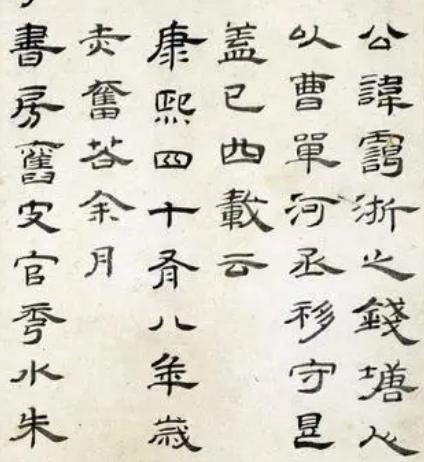 公諱浙之錢塘人
以曹單河丞移守是
蓋已四載云
康熙四十有八年歲
赤奮若余月
書房舊史官秀水朱